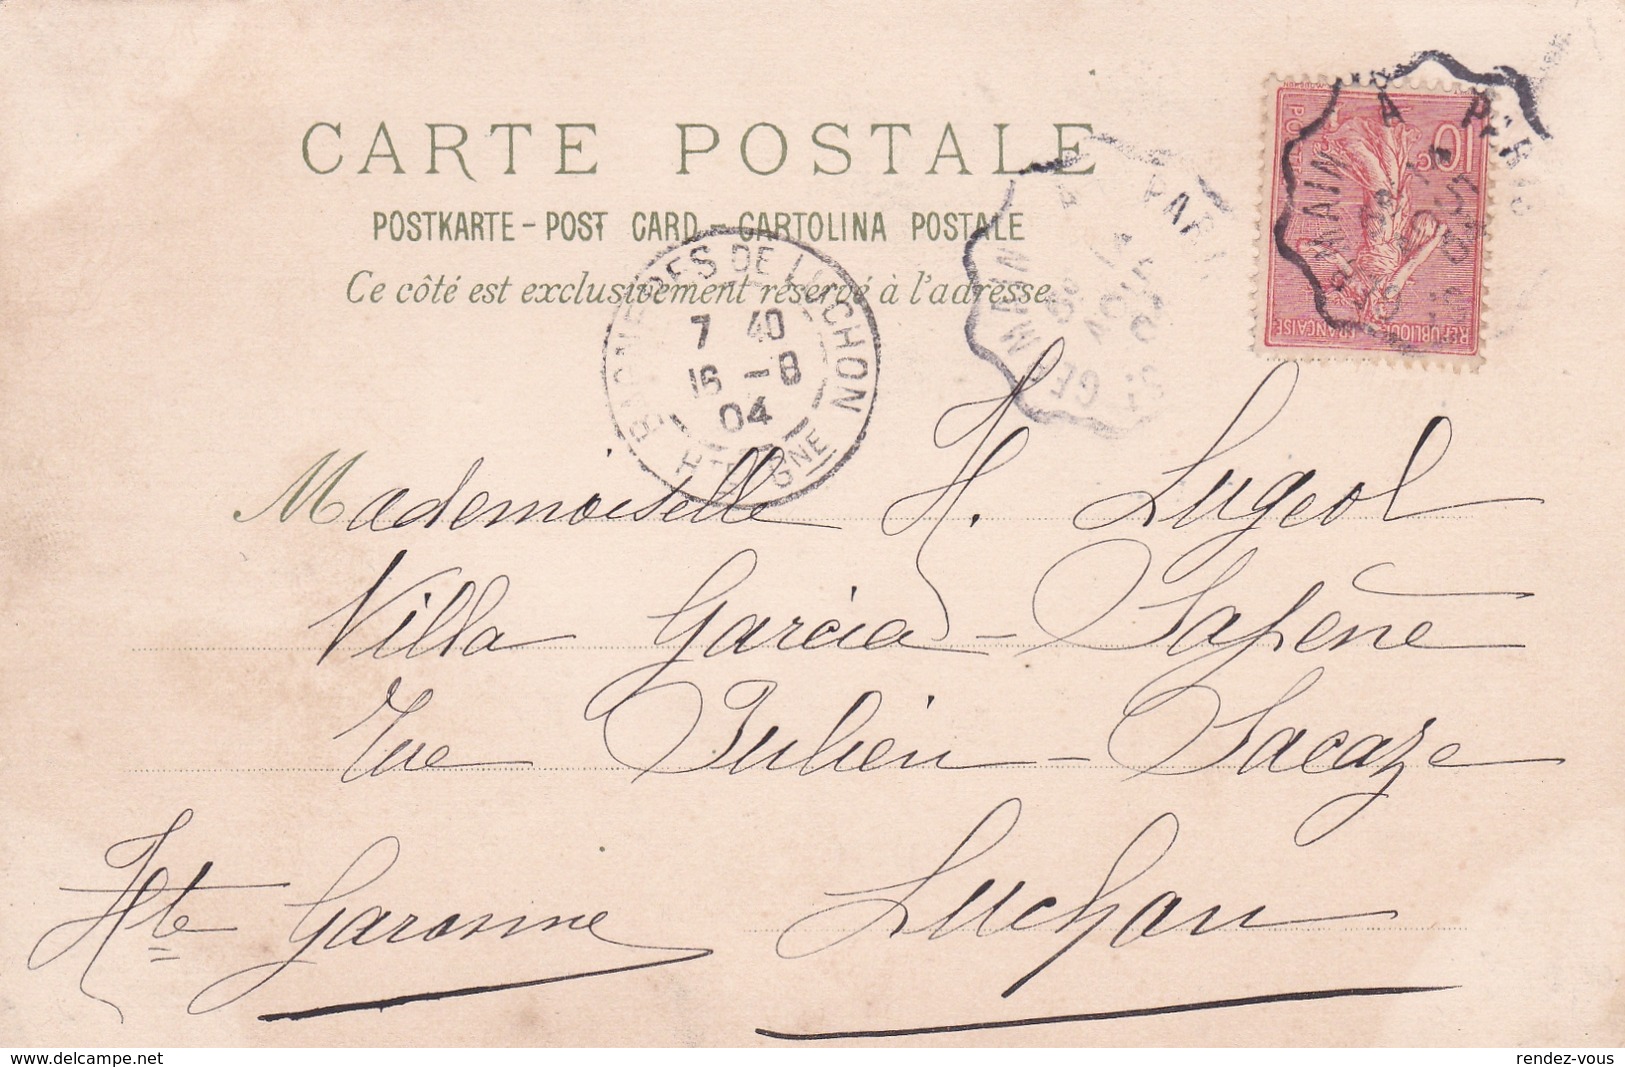 CARTE POSTALE
POSTKARTE - POST CARD - CARTOLINA POSTALE
Ce côté est exclusivement réservé à l'adresse
BAGNERES DE LUCHON
7 40
16 -8
04
HTE GNE
A PARIS
GERMAIN
A PARIS
GERMAIN
10c
POSTES
REPUBLIQUE FRANÇAISE
Mademoiselle H. Lugeol
Villa Garcia - Lafène
Rue Julien - Sacaze
Luchon
Hte Garonne
www.delcampe.net
rendez-vous